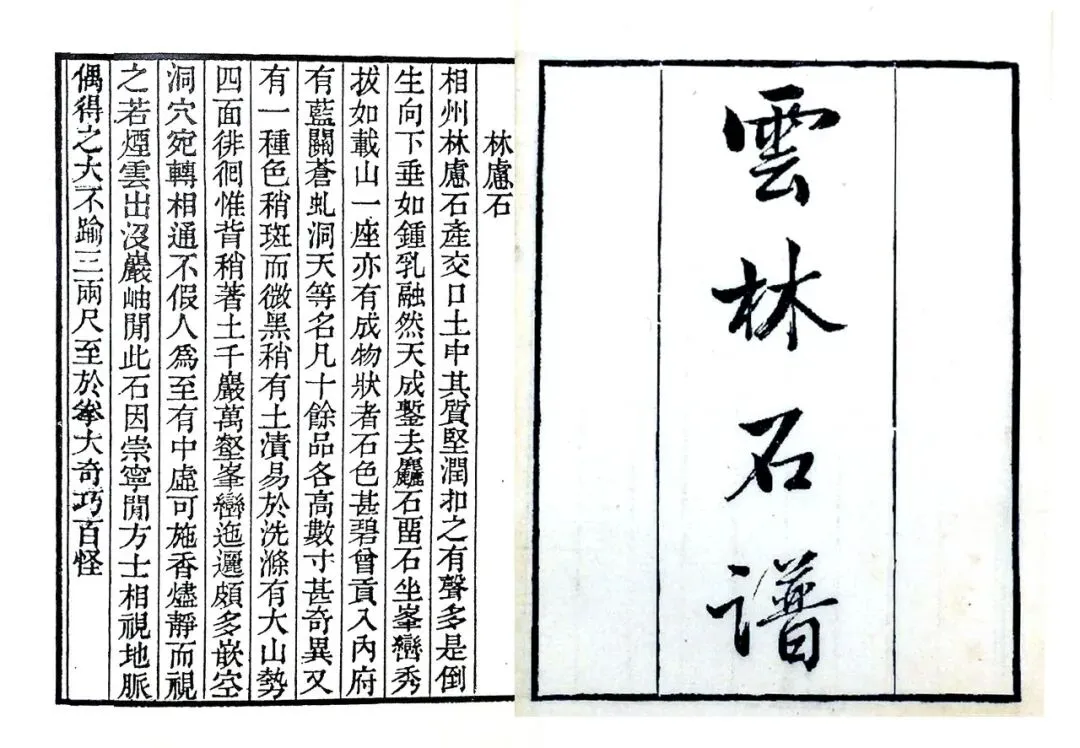 雲林石譜
林慮石
相州林慮石產交口土中其質堅潤扣之有聲多是倒
生向下垂如鍾乳融然天成鏨去麤石留石坐峯巒秀
拔如載山一座亦有成物狀者石色甚碧曾貢入內府
有藍關蒼虬洞天等名凡十餘品各高數寸甚奇異又
有一種色稍斑而微黑稍有土漬易於洗滌有大山勢
四面徘徊惟背稍著土千巖萬壑峯巒迤邐頗多嵌空
洞穴宛轉相通不假人爲至有中虛可施香燼靜而視
之若煙雲出沒巖岫閒此石因崇寧閒方士相視地脈
偶得之大不踰三兩尺至於拳大奇巧百怪